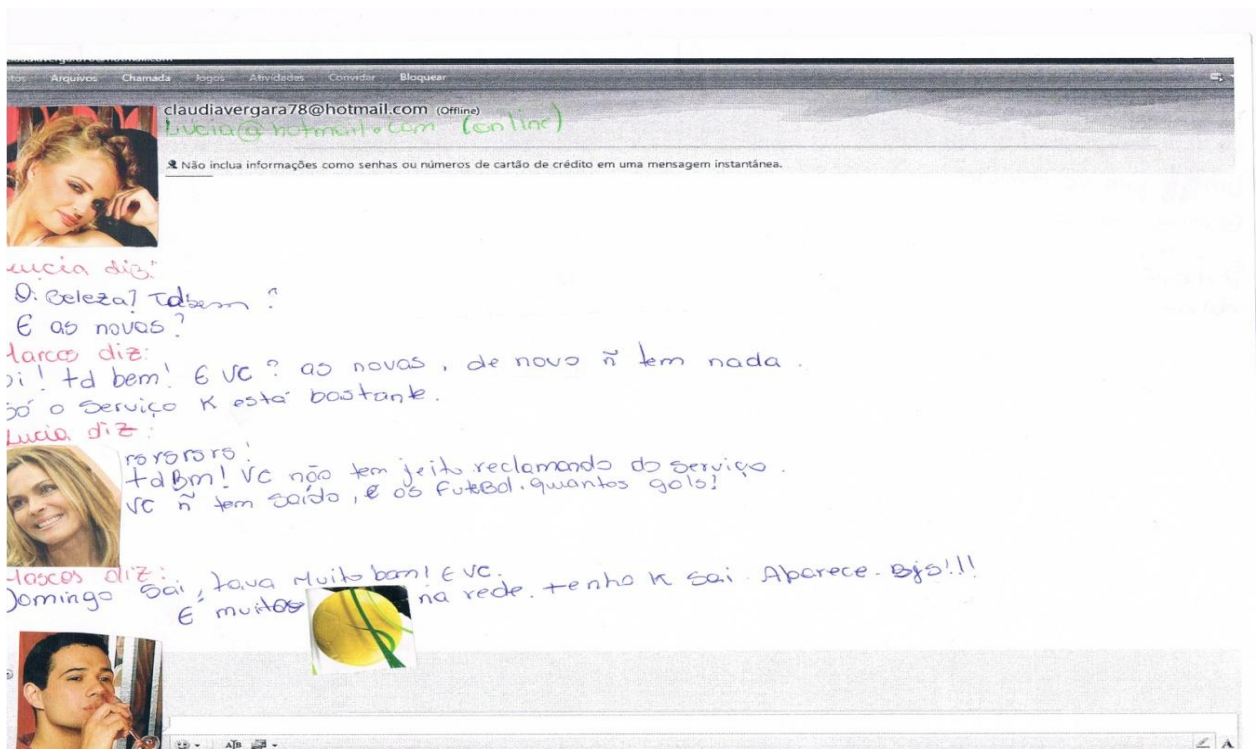 Arquivos Chamada Jogos Atividades Convidar Bloquear
claudiavergara78@hotmail.com (Offline)
(online)
Não inclua informações como senhas ou números de cartão de crédito em uma mensagem instantânea.
Lucia diz:
Oi Beleza? Td bem?
E as novas?
Marcos diz:
oi! td bem! E VC? as novas, de novo ñ tem nada.
só o serviço K está bastante.
Lucia diz:
rsrsrsrs!
tdBm! VC não tem jeito reclamando do serviço.
VC ñ tem saído, e os FuteBol. quantos gols!
Marcos diz:
Domingo Sai, tava Muito bom! E VC.
E muitos na rede. tenho K sai. Aparece. Bjs!!!